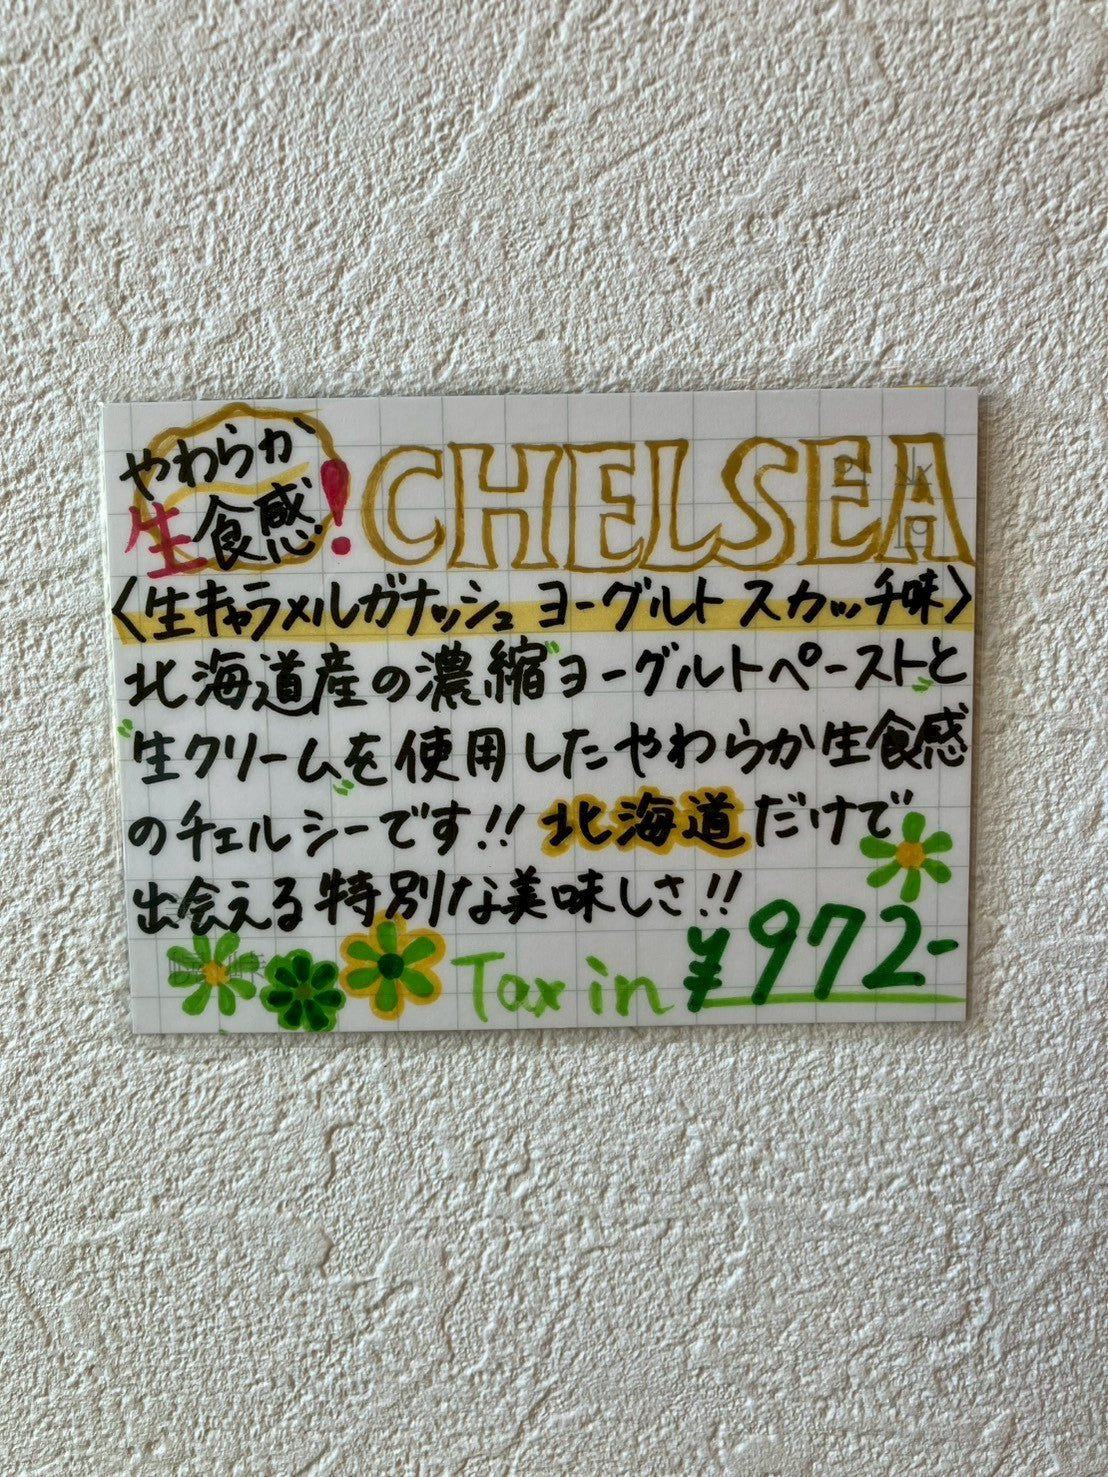 やわらか
生食感!
CHELSEA
〈生キャラメルガナッシュ ヨーグルトスカッチ味〉
北海道産の濃縮"ヨーグルトペースト"と
"生クリーム"を使用したやわらか生食感
のチェルシーです!! 北海道だけで
出会える特別な美味しさ!!
Tax in ¥972-